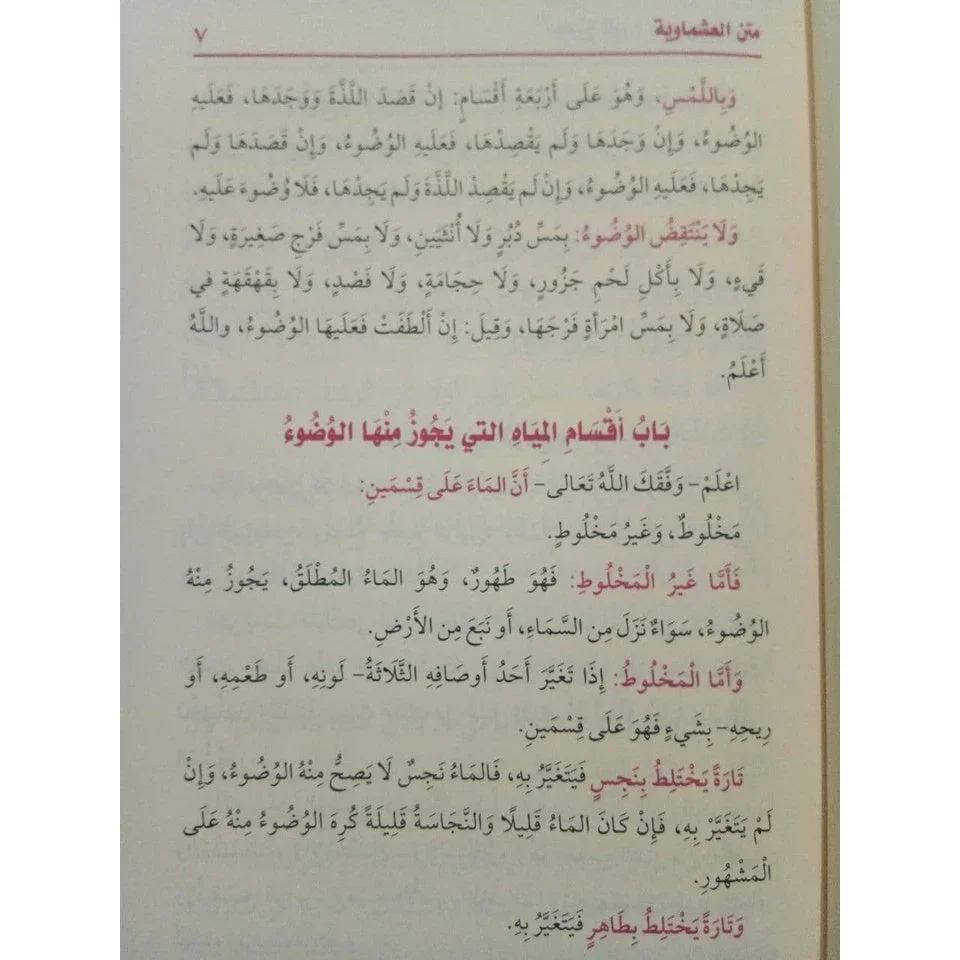 متن العشماوية ٧
وَبِاللَّمْسِ، وَهُوَ عَلَى أَرْبَعَةِ أَقْسَامٍ: إِنْ قَصَدَ اللَّذَّةَ وَوَجَدَهَا، فَعَلَيهِ
الوُضُوءُ، وَإِنْ وَجَدَهَا وَلَم يَقْصِدْهَا، فَعَلَيهِ الوُضُوءُ، وَإِنْ قَصَدَهَا وَلَم
يَجِدْهَا، فَعَلَيهِ الوُضُوءُ، وَإِنْ لَم يَقْصِدْ اللَّذَّةَ وَلَم يَجِدْهَا، فَلَا وُضُوءَ عَلَيهِ.
وَلَا يَنْتَقِضُ الوُضُوءُ: بِمَسِّ دُبُرٍ وَلَا أُنْثَيَينِ، وَلَا بِمَسِّ فَرْجِ صَغِيرَةٍ، وَلَا
قَيءٍ، وَلَا بِأَكْلِ لَحْمِ جَزُورٍ، وَلَا حِجَامَةٍ، وَلَا فَصْدٍ، وَلَا بِقَهْقَهَةٍ فِي
صَلَاةٍ، وَلَا بِمَسِّ امْرَأَةٍ فَرْجَهَا، وَقِيلَ: إِنْ أَلْطَفَتْ فَعَلَيهَا الوُضُوءُ، واللَّهُ
أَعْلَمُ.
بَابُ أَقْسَامِ المِيَاهِ التي يَجُوزُ مِنْهَا الوُضُوءُ
اعْلَمْ- وَفَّقَكَ اللَّهُ تَعَالى- أَنَّ المَاءَ عَلَى قِسْمَينِ:
مَخْلُوطٌ، وَغَيرُ مَخْلُوطٍ.
فَأَمَّا غَيرُ الْمَخْلُوطِ: فَهُوَ طَهُورٌ، وَهُوَ المَاءُ المُطْلَقُ، يَجُوزُ مِنْهُ
الوُضُوءُ، سَوَاءٌ نَزَلَ مِن السَّمَاءِ، أَو نَبَعَ مِن الأَرْضِ.
وَأَمَّا الْمَخْلُوطُ: إِذَا تَغَيَّرَ أَحَدُ أَوصَافِهِ الثَّلَاثَةُ- لَونِهِ، أَو طَعْمِهِ، أَو
رِيحِهِ- بِشَيءٍ فَهُوَ عَلَى قِسْمَينِ.
تَارَةً يَخْتَلِطُ بِنَجِسٍ فَيَتَغَيَّرُ بِهِ، فَالمَاءُ نَجِسٌ لَا يَصِحُّ مِنْهُ الوُضُوءُ، وَإِنْ
لَمْ يَتَغَيَّرْ بِهِ، فَإِنْ كَانَ المَاءُ قَلِيلًا وَالنَّجَاسَةُ قَلِيلَةً كُرِهَ الوُضُوءُ مِنْهُ عَلَى
الْمَشْهُورِ.
وَتَارَةً يَخْتَلِطُ بِطَاهِرٍ فَيَتَغَيَّرُ بِهِ.